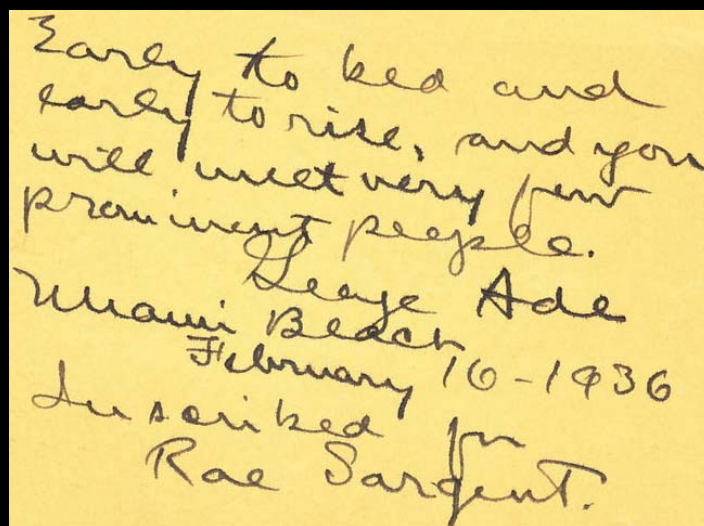 Early to bed and
early to rise, and you
will meet very few
prominent people.
George Ade
Miami Beach
February 16-1936
Inscribed for
Rae Sargent.